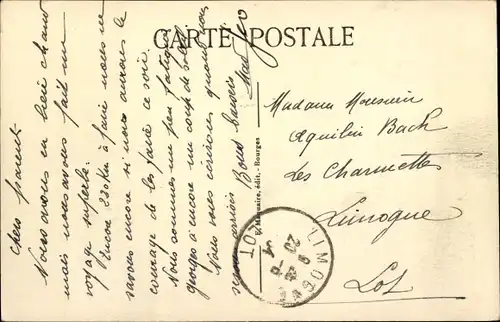 CARTE POSTALE
Chers parents
Nous avons eu bien chaud
mais nous avons fait un
voyage superbe.
Encore 230 km à faire nous ne
savons encore si nous aurons le
courage de les faire ce soir.
Nous sommes un peu fatigués
georges a encore un coup de soleil
Nous vous écrirons quand nous
serons arrivés Bons baisers
Madame Monsieur
Aquilin Bach
Les Charmettes
Limogne
Lot
édit. - Bourges
LIMOGNE
LOT